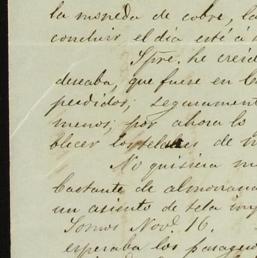 la moneda de cobre, la
concluir el dia esté á
Spre. he creid
deseaba, que fuese en l
perdidos; segurament
menos; por ahora lo
blecer los telares de m
No quisiera m
bastante de almorrana
un asiento de tela im
Tomos Novᵉ 16.
esperaba los pasage